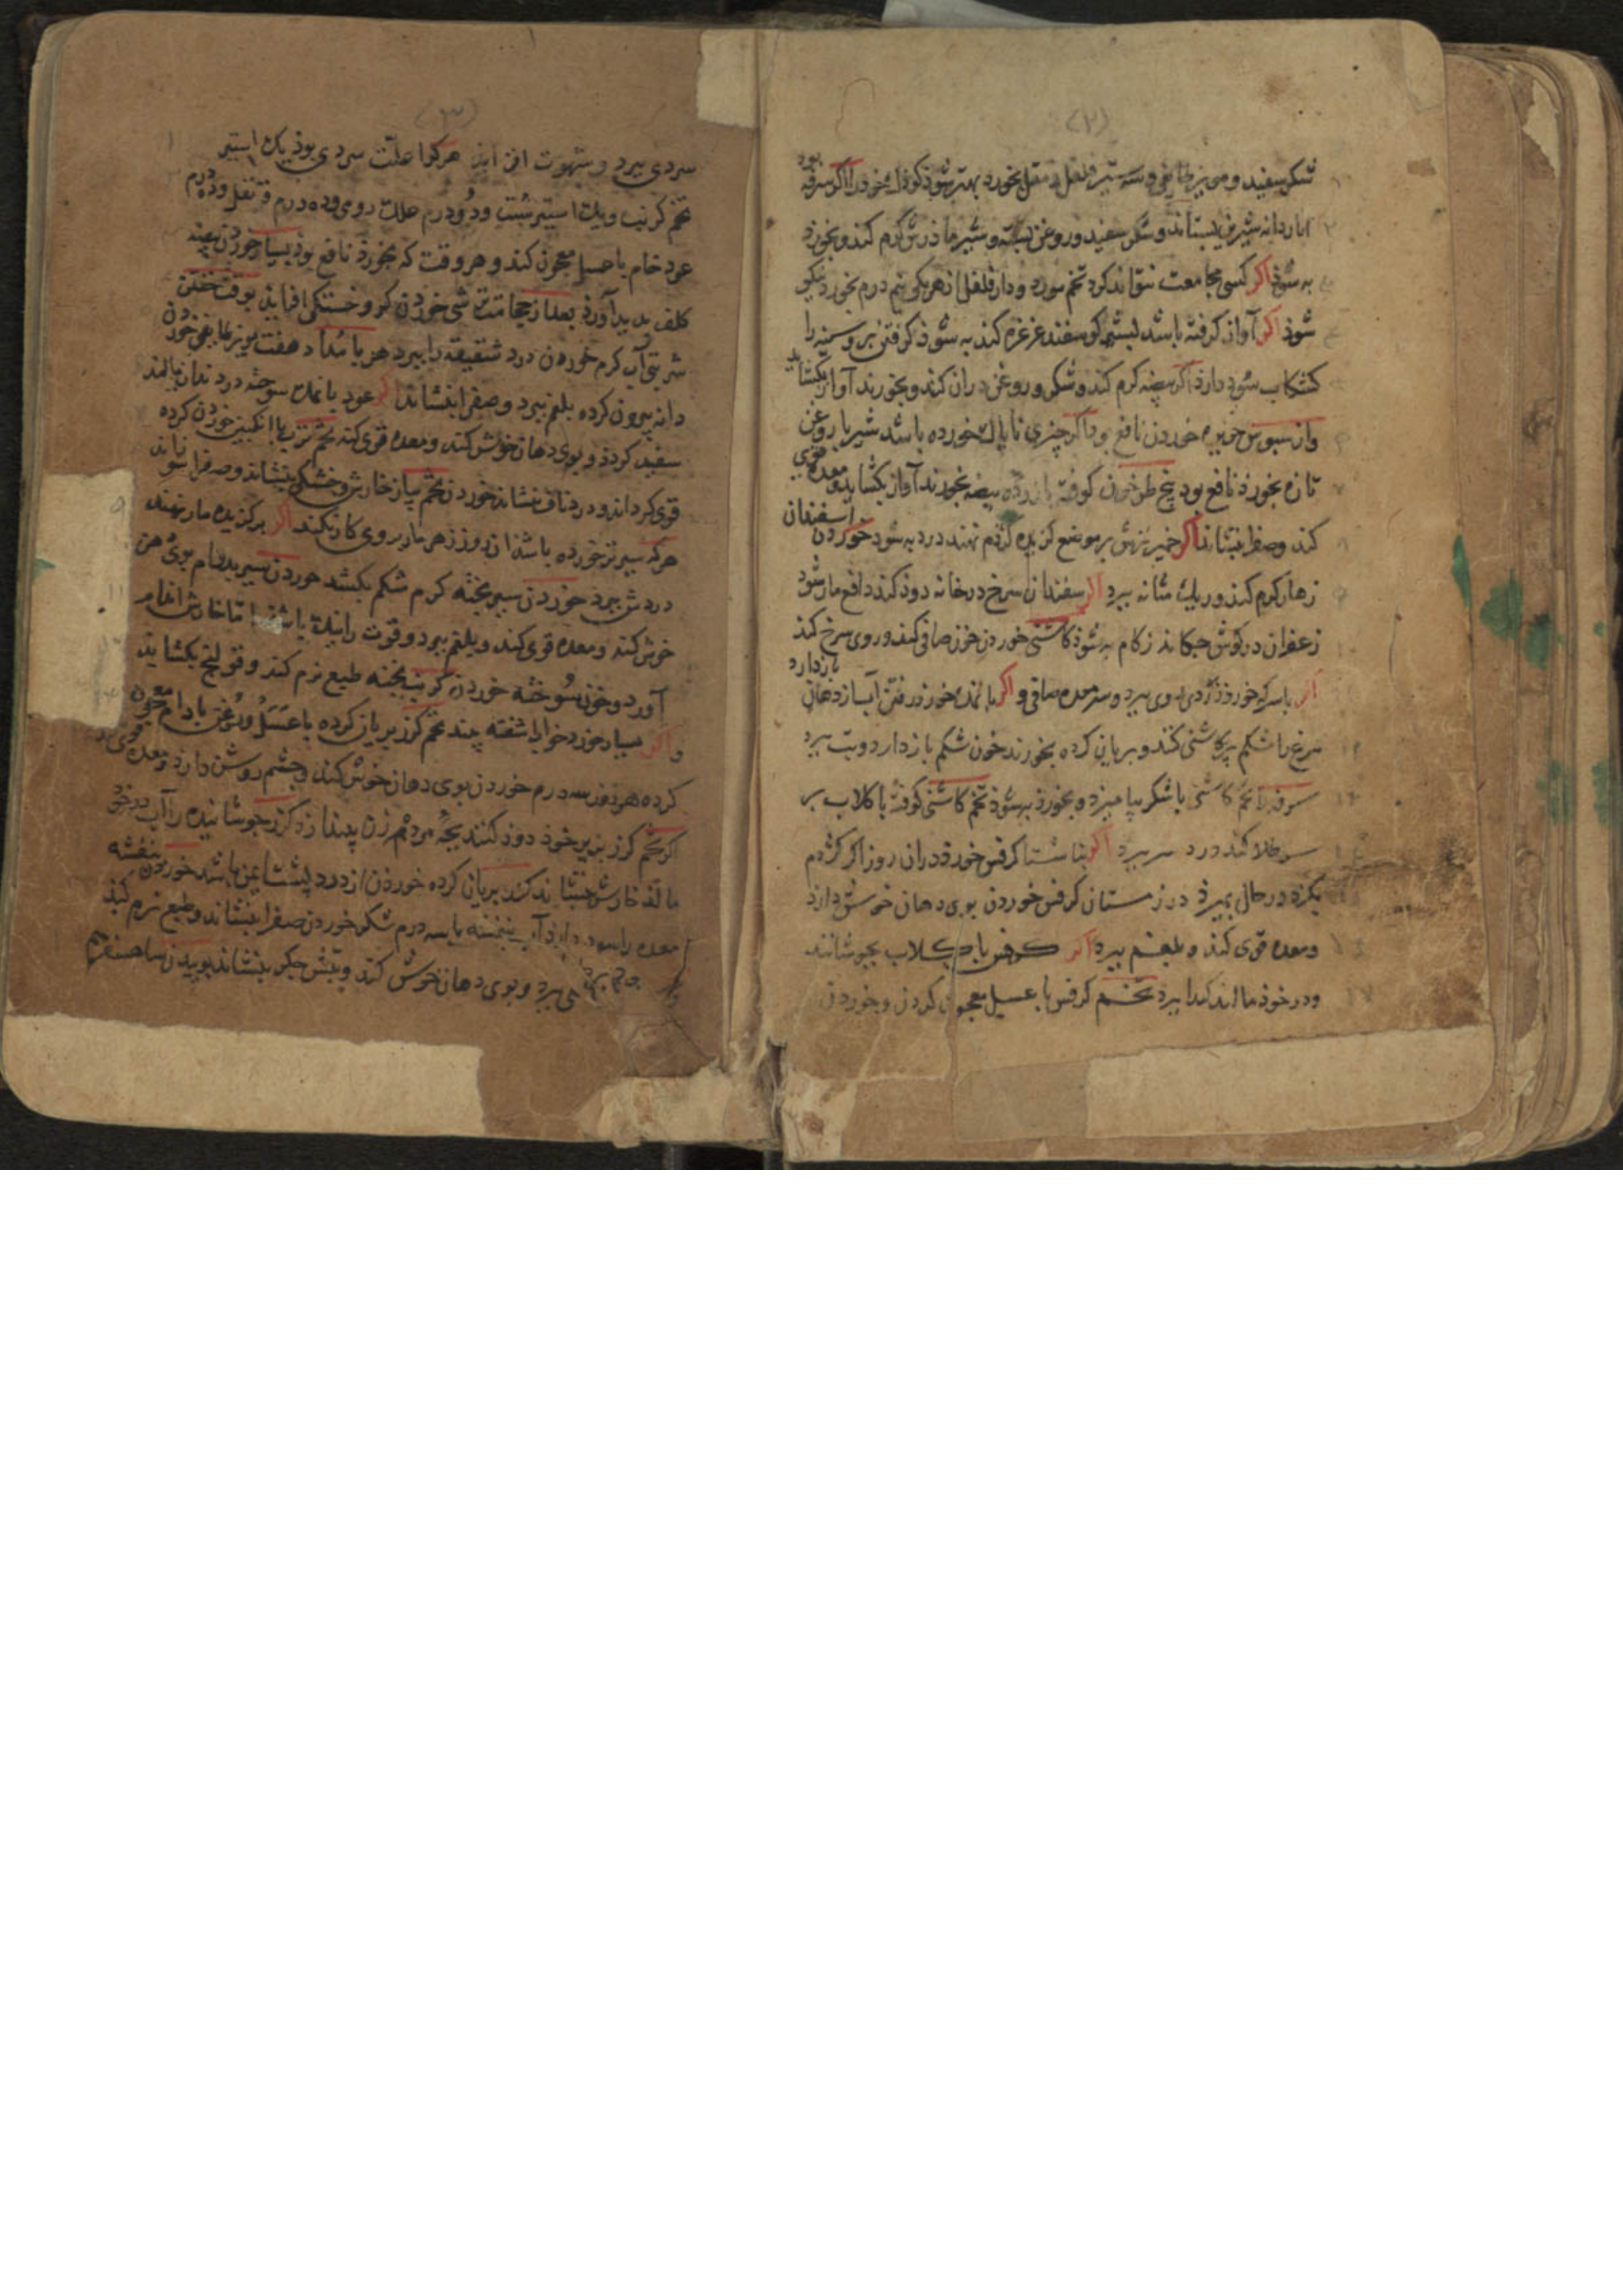 (۲)
شکر سفید و مویز طایفی و سه ستیر فلفل و مقل بخورد بهتر شوذ کوذک خورد را اکر سرفه بود
اناردانه شیرین بستاند و شکر سفید و روغن بسته و شیر ماذرش کرم کند و بخورد
به شوذ اکر کسی مجامعت نتواند کرد تخم مورد و دار فلفل از هر یکی نیم درم بخورد نیکو
شوذ اکر آواز کرفته باشد بشیر کوسفند غرغره کند به شوذ کرفتن بر و سینه را
کشکاب سود دارد اکر بیضه کرم کند و شکر و روغن دران کند و بخورند آواز بکشاید
و از سبوس حریره خوردن نافع بود اکر چیزی ناپاک خورده باشد شیر با روغن
تازه بخورد نافع بود بیخ طرخون کوفته با زرده بیضه بخورند آواز بکشاید و معده قوی
کند و صفرا بنشاند اکر خمیر ترش بر موضع کزیده کژدم نهند درد به شود خوردن اسفندان
زهار کرم کند و ریک مثانه ببرد اکر سفندان سرخ در خانه دوذ کند دافع مار شود
زعفران در کوش چکاند زکام به شوذ کاسنی خوردن خون صافی کند و روی سرخ کند
اکر با سرکه خورد زردی روی ببرد و سر معده صافی و اکر با نمک خورد رفتن آب از دهان باز دارد
مرغ را شکم پر کاسنی کند و بریان کرده بخورند خون شکم باز دارد و تب ببرد
سرفه را تخم کاسنی با شکر بیامیزد و بخورد به شوذ تخم کاسنی کوفته با کلاب بر
سر طلا کند درد سر ببرد اکر بناشتا کرفس خورد دران روز اکر کژدم
بکزد در حال بمیرد در زمستان کرفس خوردن بوی دهان خوش دارد
و معده قوی کند و بلغم ببرد اکر کرفس با کلاب بجوشانند
و در خوذ مالند کدا ببرد تخم کرفس با عسل معجون کردن و خوردن
(۳)
سردی ببرد و شهوت افزایذ هر کرا علت سردی بوذ یک استیر
تخم کرنب و یک استیر شبت و دو درم علک رومی و ده درم قرنفل و ده درم
عود خام با عسل معجون کند و هر وقت که بخورد نافع بوذ بسیار خوردن بیضه
کلف پدید آورد بعد از حجامت ترشی خوردن کر و خستکی افزاید بوقت خفتن
شربتی آب کرم خوردن درد شقیقه را ببرد هر بامداد هفت مویز طایفی خوردن
دانه بیرون کرده بلغم ببرد و صفرا بنشاند اکر عود با نمک سوخته در دندان مالند
سفید کردد و بوی دهان خوش کند و معده قوی کند تخم ترب با انکبین خوردن کرده
قوی کرداند و درد ناف بنشاند خوردن تخم پیاز خارش و خشکی بنشاند و صفرا سوزاند
هر که سیر تر خورده باشد آن روز زهر مار بروی کار نکند اکر بر کزیده مار نهند
دردش ببرد خوردن سیر پخته کرم شکم بکشد خوردن سیر بدوام بوی دهن
خوش کند و معده قوی کند و بلغم ببرد و قوت را بیفزاید باشد اما خارش اندام
آورد و خون سوخته خوردن کرنب پخته طبع نرم کند و قولنج بکشاید
و اکر بسیار خورد خواب آشفته بیند تخم کزر بریان کرده با عسل و روغن بادام معجون
کرده هر روز سه درم خوردن بوی دهان خوش کند و چشم روشن دارد و معده قوی کند
اکر تخم کزر بزیر خود دود کنند بچه مرده از زن بیندازد کزر جوشانیده را آب در خود
مالد خارش بنشاند کزر بریان کرده خوردن از درد پشت ایمن باشد خوردن بنفشه
معده را سود دارد آب بنفشه با سه درم شکر خوردن صفرا بنشاند و طبع نرم کند
ببرد و بوی دهان خوش کند و تبش جکر بنشاند بوییدن شاهسفرم